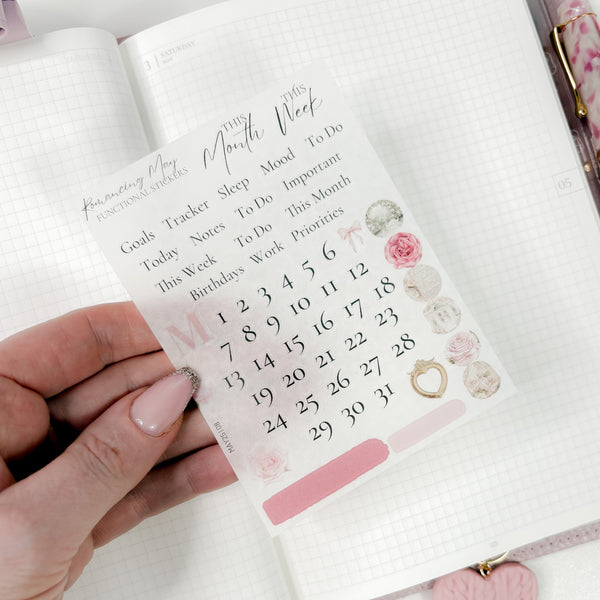 3 | SATURDAY
Romancing May
FUNCTIONAL STICKERS
THIS Month
THIS Week
Goals Tracker Sleep Mood To Do
Today Notes To Do Important
This Week To Do This Month
Birthdays Work Priorities
M
1 2 3 4 5 6
7 8 9 10 11 12
13 14 15 16 17 18
19 20 21 22 23
24 25 26 27 28
29 30 31
MAY25108
05